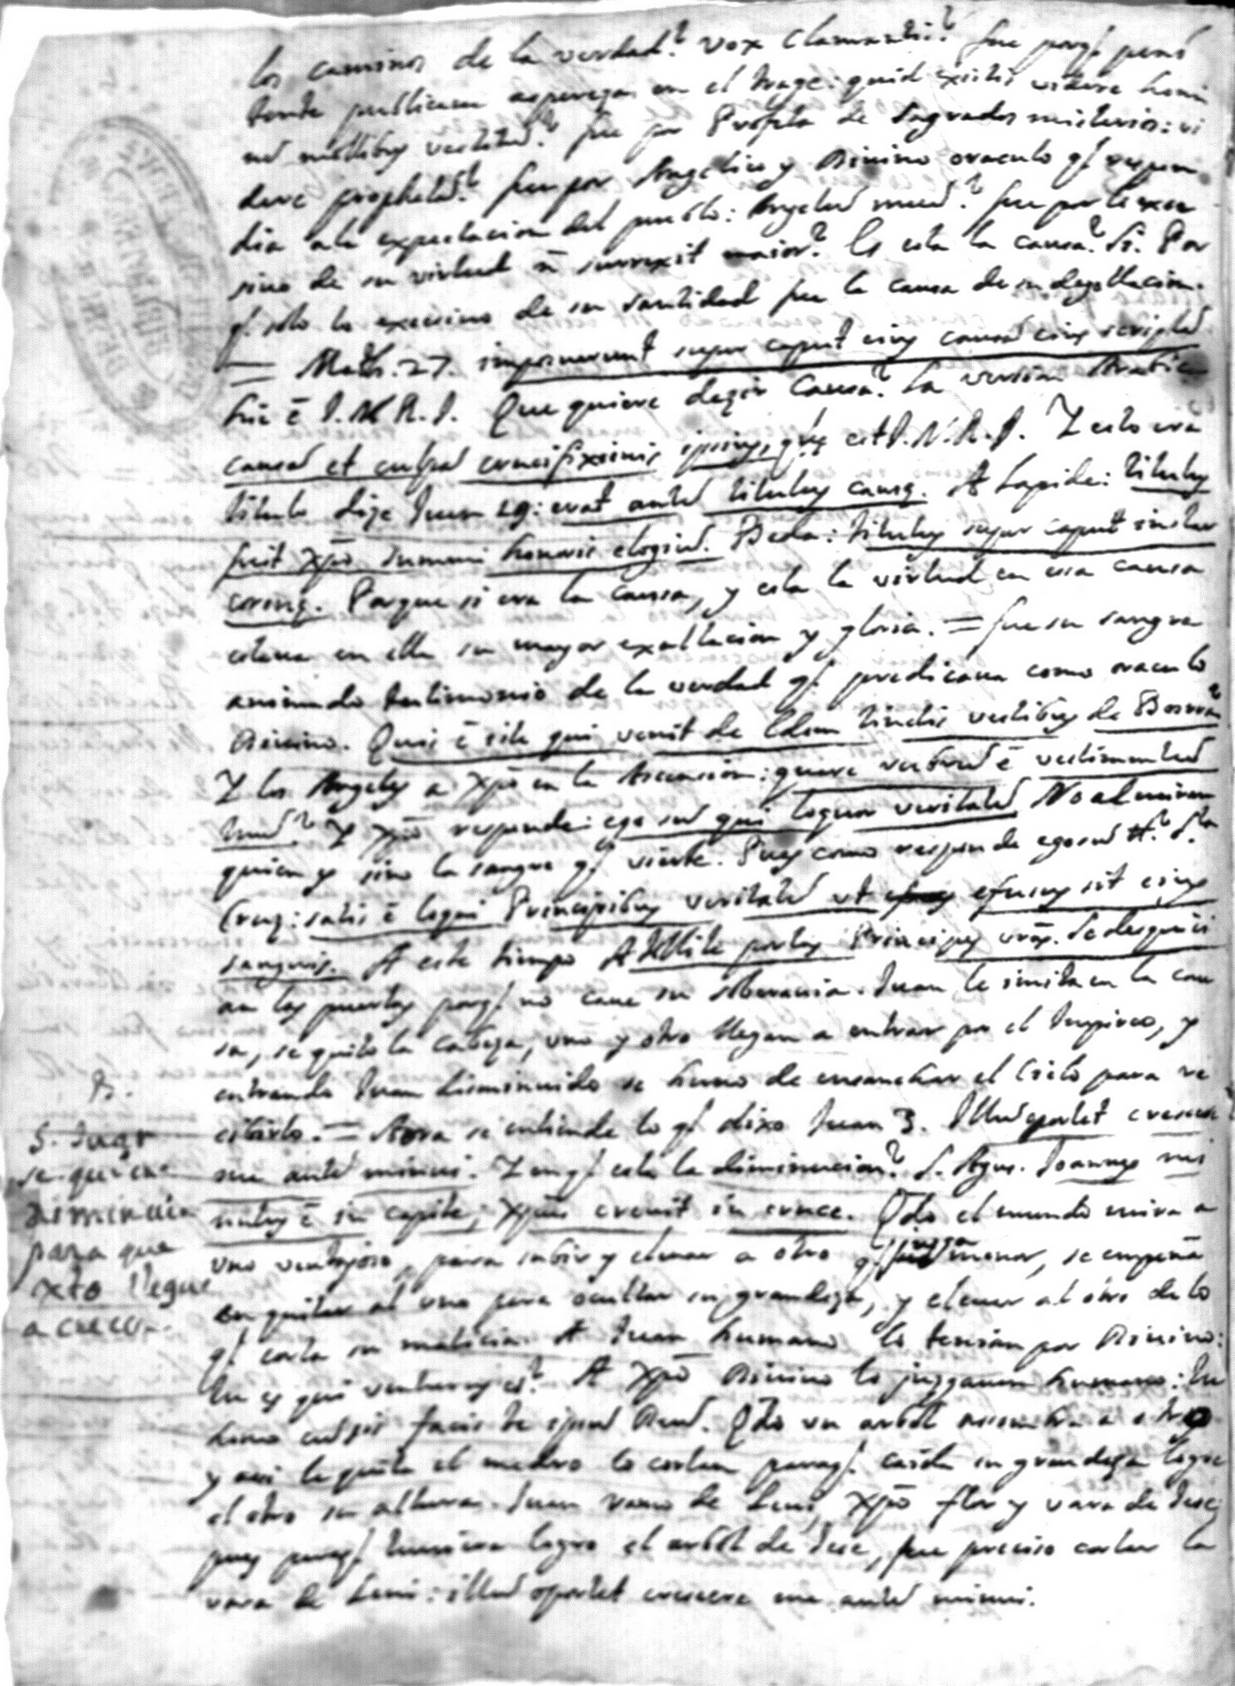 los caminos de la verdad? vox Clamantis? fue porq̃ peni
tente publicaua asperezas en el trage: quid existis videre homi
nē mollibus vestitū? fue por Profeta de Sagrados misterios: vi
dere prophetā? fue por Angelico y Divino oraculo q̃ respon
dia a la expectacion del pueblo: Angelū meū? fue por lo exce
sivo de su virtud ñ surrexit maior? Es esta la causa? Si. Por
q̃ solo lo excesivo de su santidad fue la causa de su degollacion.
= Math. 27. imposuerunt super caput eius causā eius scriptā
hic ē I. N. R. I. Que quiere dezir Causa? La version Arabica
causā et culpā crucifixionis ipsius, quę est I. N. R. I. Y esto era
titulo dize Juan 19: erat autē titulus causę. A Lapide: titulus
fuit Xp̄o summi honoris elogiū. Beda: titulus super caput instar
coronę. Porque si era la causa, y esta la virtud en esa causa
estaua en ella su mayor exaltacion y gloria. = fue su sangre
animado testimonio de la verdad q̃ predicaua como oraculo
Divino. Quis ē iste qui venit de Edom tinctis vestibus de Bosra?
Y los Angeles a Xp̄o en la Ascension: quare rubrū ē vestimentū
tuū? Y Xp̄o responde: ego sū qui loquor veritatē No al miren
quien es sino la sangre q̃ vierte. Pues como responde ego sū
Cruz: satis ē loqui Principibus veritatē ut efusus sit eius
sanguis. A este tiempo Attollite portas Principes vrās. Se desquici
an las puertas porq̃ no caue su soberania. Juan le imita en la cau
sa, se quito la cabeza, uno y otro llegan a entrar por el Impireo, y
entrando Juan disminuido se huuo de ensanchar el Cielo para re
cibirlo. = Aora se entiende lo q̃ dixo Juan 3. Illū oportet crescere
me autē minui. Y en q̃ esta la diminucion? S. Agus. Joannes mi
nutus ē in capite, Xp̄us creuit in cruce. Qdo el mundo mira a
uno ventajoso, para subir y eleuar a otro q̃ juzga menor, se empeña
en quitar al uno para ocultar su grandeza, y eleuar al otro de lo
q̃ corta su malicia. A Juan humano lo tenian por Divino:
tu es qui venturus es? A Xp̄o Divino lo juzgauan humano: tu
homo cū sis facis te ipsū Deū. Qdo un arbol asombra a otro
y asi le quita el medro lo cortan paraq̃ caida su grandeza logre
el otro su altura. Juan ramo de Leui, Xp̄o flor y vara de Jese,
pues paraq̃ tuuiera logro el arbol de Jese, fue preciso cortar la
vara de Leui: illū oportet crescere me autē minui.
S. Juan
se quiere
diminuir
para que
xto llegue
a crecer.